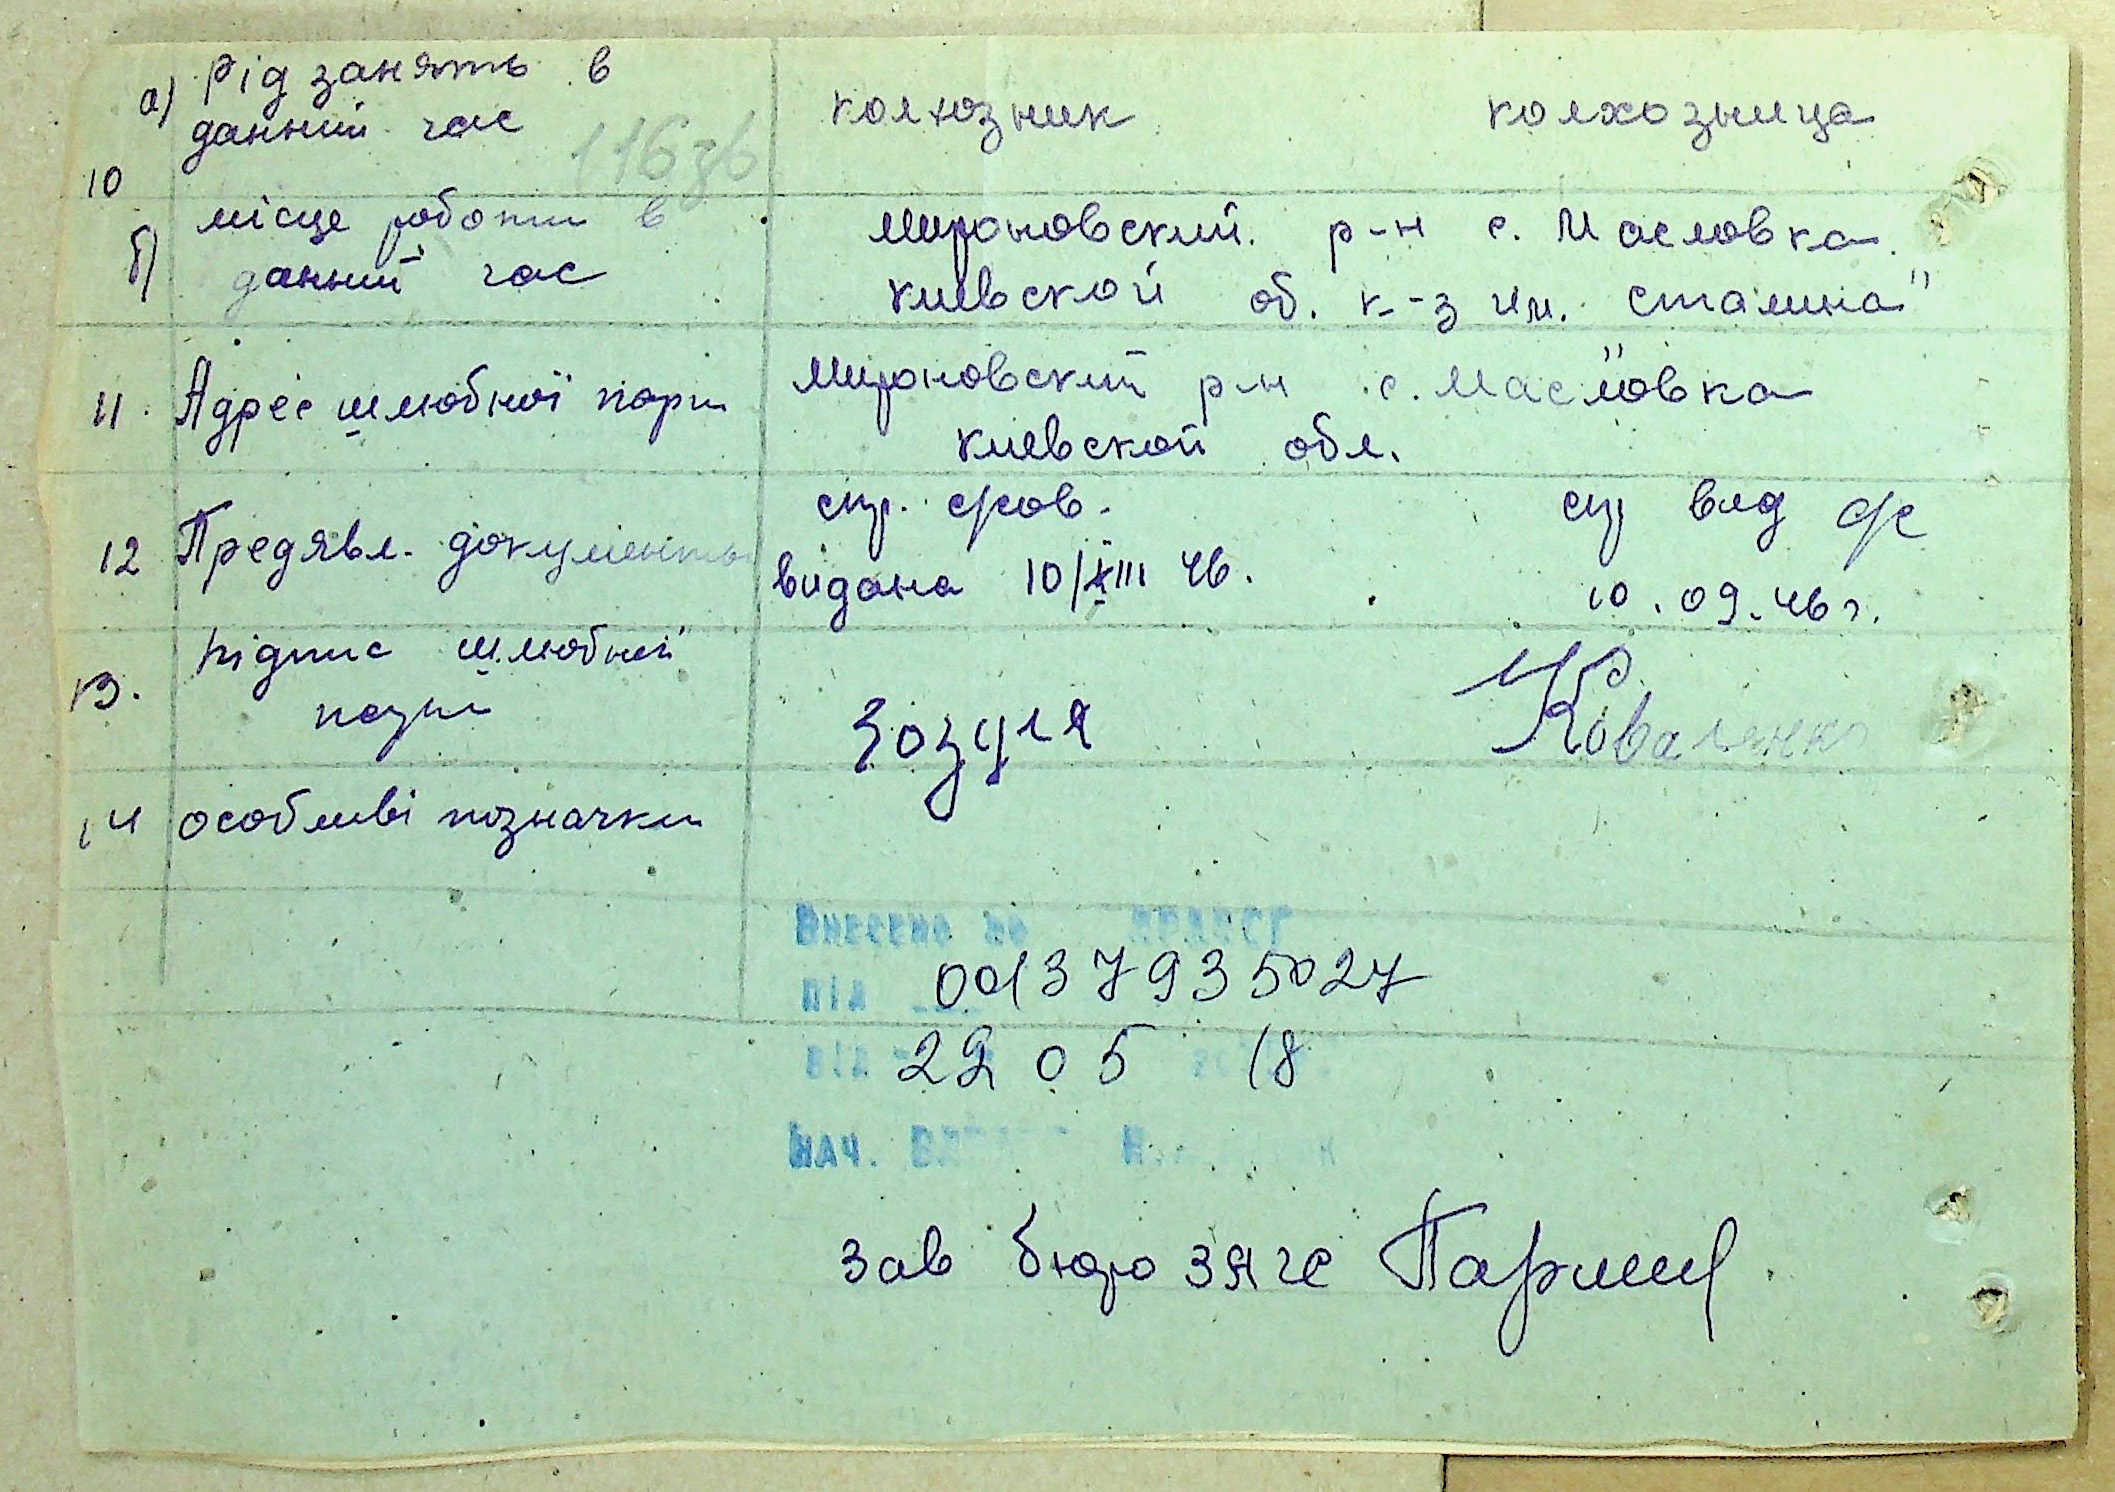 а) Рід занять в
данний час
116зв
колхозник колхозница
10
б) місце роботи в
данний час
Мироновский р-н с. Масловка
киевской об. к-з им. Сталина"
11. Адрес шлюбної пари
Мироновский р-н с. Масловка
киевской обл.
12 Предявл. документы
спр.
видана 46.
10.09.46 г.
13. підпис шлюбной
Зозуля
Коваленко
14 особливі позначки
Внесено до
під 00137935027
від 22 05 18
Нач.
зав бюро загс